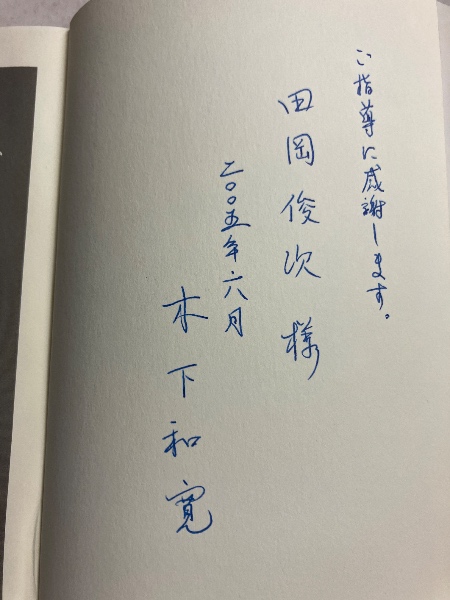 ご指導に感謝します。
田岡俊次様
二〇〇五年六月
木下和寛